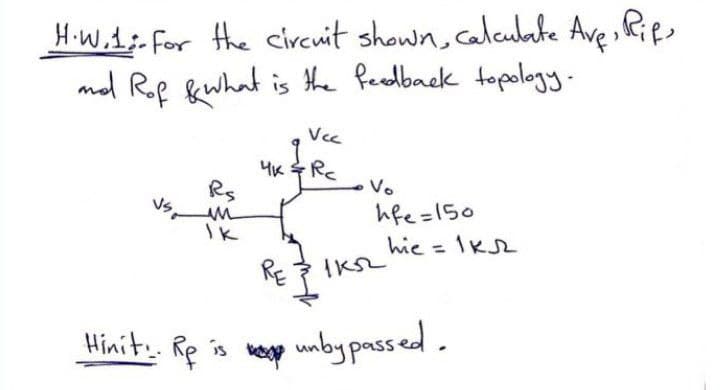 H.W.1:- For the circuit shown, calculate Avf, Rif,
and Rof & what is the feedback topology.
Vcc
4K Rc
Rs Vo
Vs hfe = 150
1K hie = 1KΩ
RE 1KΩ
Hinit:. RF is unbypassed.